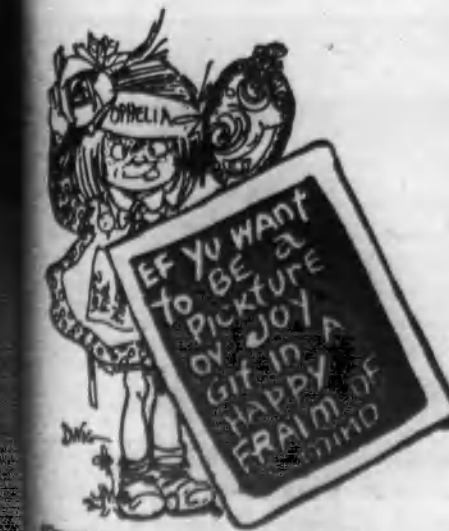 OPHELIA
EF YU WANT
to BE a
PICKTURE
OV JOY
GIT IN A
HAPPY
FRAIM OF
MIND
DWIG